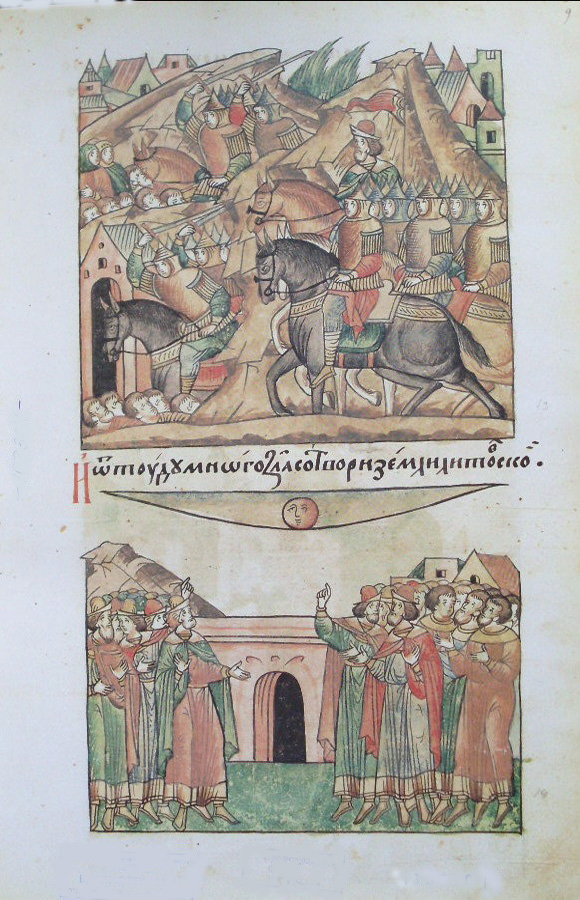 И ѿтоудꙋ мнѡго зла сотвори земли литовской.
9